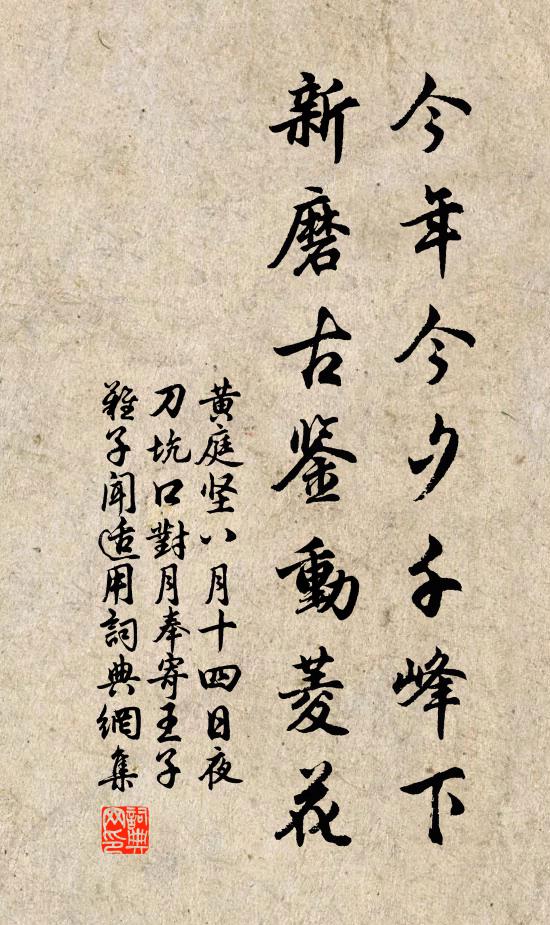 今年今夕千峰下
新磨古鉴動菱花
黄庭坚八月十四日夜
刀坑口對月奉寄王子
難子聞适用詞典網集
詞典网印